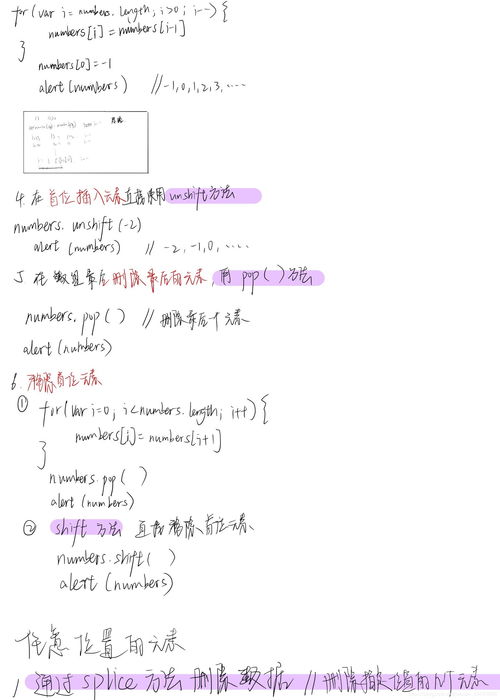 for(var i=numbers.length; i>0; i--){
numbers[i]=numbers[i-1]
}
numbers[0]=-1
alert(numbers) //-1,0,1,2,3,.....
4.在首位插入元素直接使用unshift方法
numbers.unshift(-2)
alert(numbers) // -2,-1,0,.....
5 在数组最后删除最后的元素,用pop()方法
numbers.pop() //删除最后个元素
alert(numbers)
6.删除首位元素
① for(var i=0; i<numbers.length; i++){
numbers[i]=numbers[i+1]
}
numbers.pop( )
alert(numbers)
② shift方法 直接删除首位元素
numbers.shift( )
alert(numbers)
任意位置的元素
1 通过splice方法删除数据 //删除指定位置的N个元素